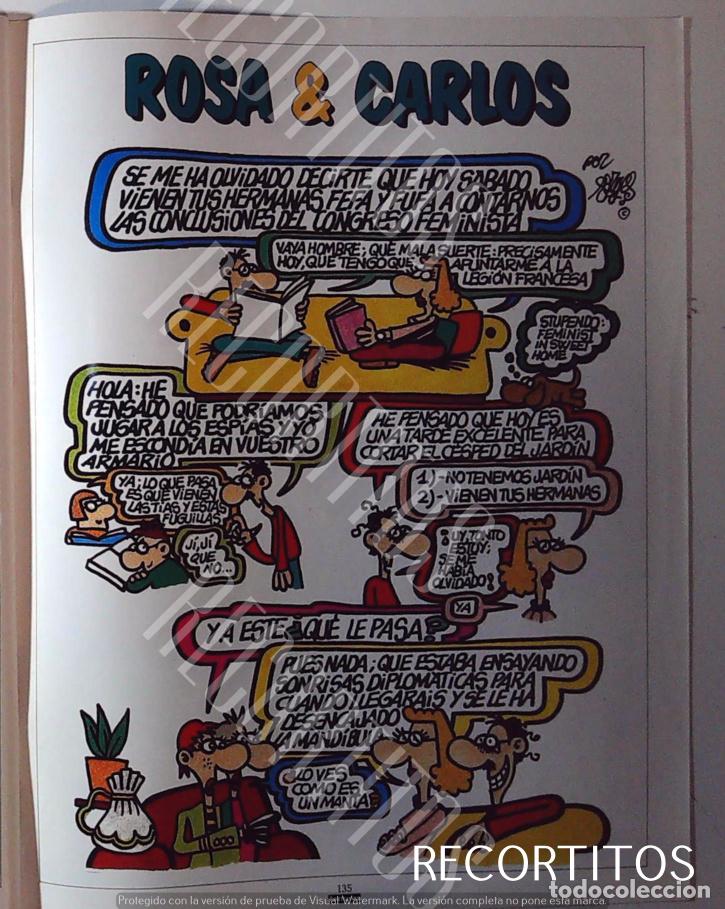 ROSA & CARLOS
POR
©
SE ME HA OLVIDADO DECIRTE QUE HOY SÁBADO
VIENEN TUS HERMANAS FEFA Y FUFA A CONTARNOS
LAS CONCLUSIONES DEL CONGRESO FEMINISTA
VAYA HOMBRE; QUÉ MALA SUERTE: PRECISAMENTE
HOY, QUE TENGO QUE APUNTARME A LA
LEGIÓN FRANCESA
STUPENDO:
FEMINIST
IN SWEET
HOME
HOLA: HE
PENSADO QUE PODRÍAMOS
JUGAR A LOS ESPÍAS Y YO
ME ESCONDÍA EN VUESTRO
ARMARIO
YA; LO QUE PASA
ES QUE VIENEN
LAS TÍAS Y ESTÁS
FUGUILLAS
JI, JÍ
QUE
NO...
HE PENSADO QUE HOY ES
UNA TARDE EXCELENTE PARA
CORTAR EL CÉSPED DEL JARDÍN
1)-NO TENEMOS JARDÍN
2)-VIENEN TUS HERMANAS
¡UY, TONTO
ESTOY;
SE ME
HABÍA
OLVIDADO!
YA
Y A ESTE ¿QUÉ LE PASA?
PUES NADA; QUE ESTABA ENSAYANDO
SONRISAS DIPLOMÁTICAS PARA
CUANDO LLEGARAIS Y SE LE HA
DESENCAJADO
LA MANDÍBULA
¿LO VES
CÓMO ES
UN MANTA?
135
RECORTITOS
todocoleccion
Protegido con la versión de prueba de Visual Watermark. La versión completa no pone esta marca.
RECORTITOS